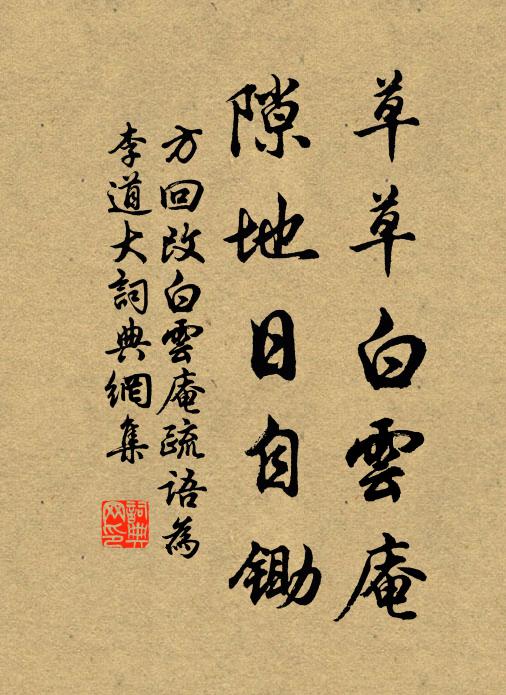 草草白雲庵
隙地日自鋤
方回改白雲庵疏語為
李道大詞典網集
詞典網印